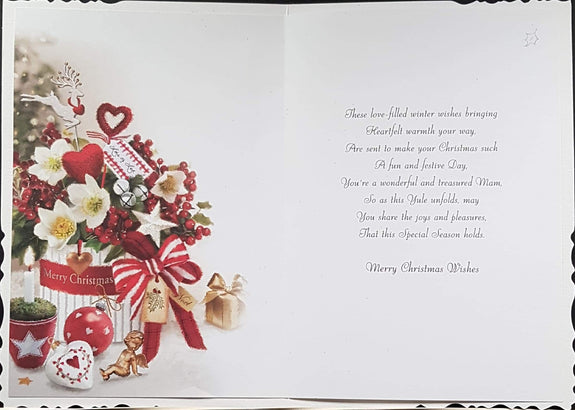 Merry Christmas
Noel
These love-filled winter wishes bringing
Heartfelt warmth your way,
Are sent to make your Christmas such
A fun and festive Day,
You're a wonderful and treasured Mam,
So as this Yule unfolds, may
You share the joys and pleasures,
That this Special Season holds.
Merry Christmas Wishes